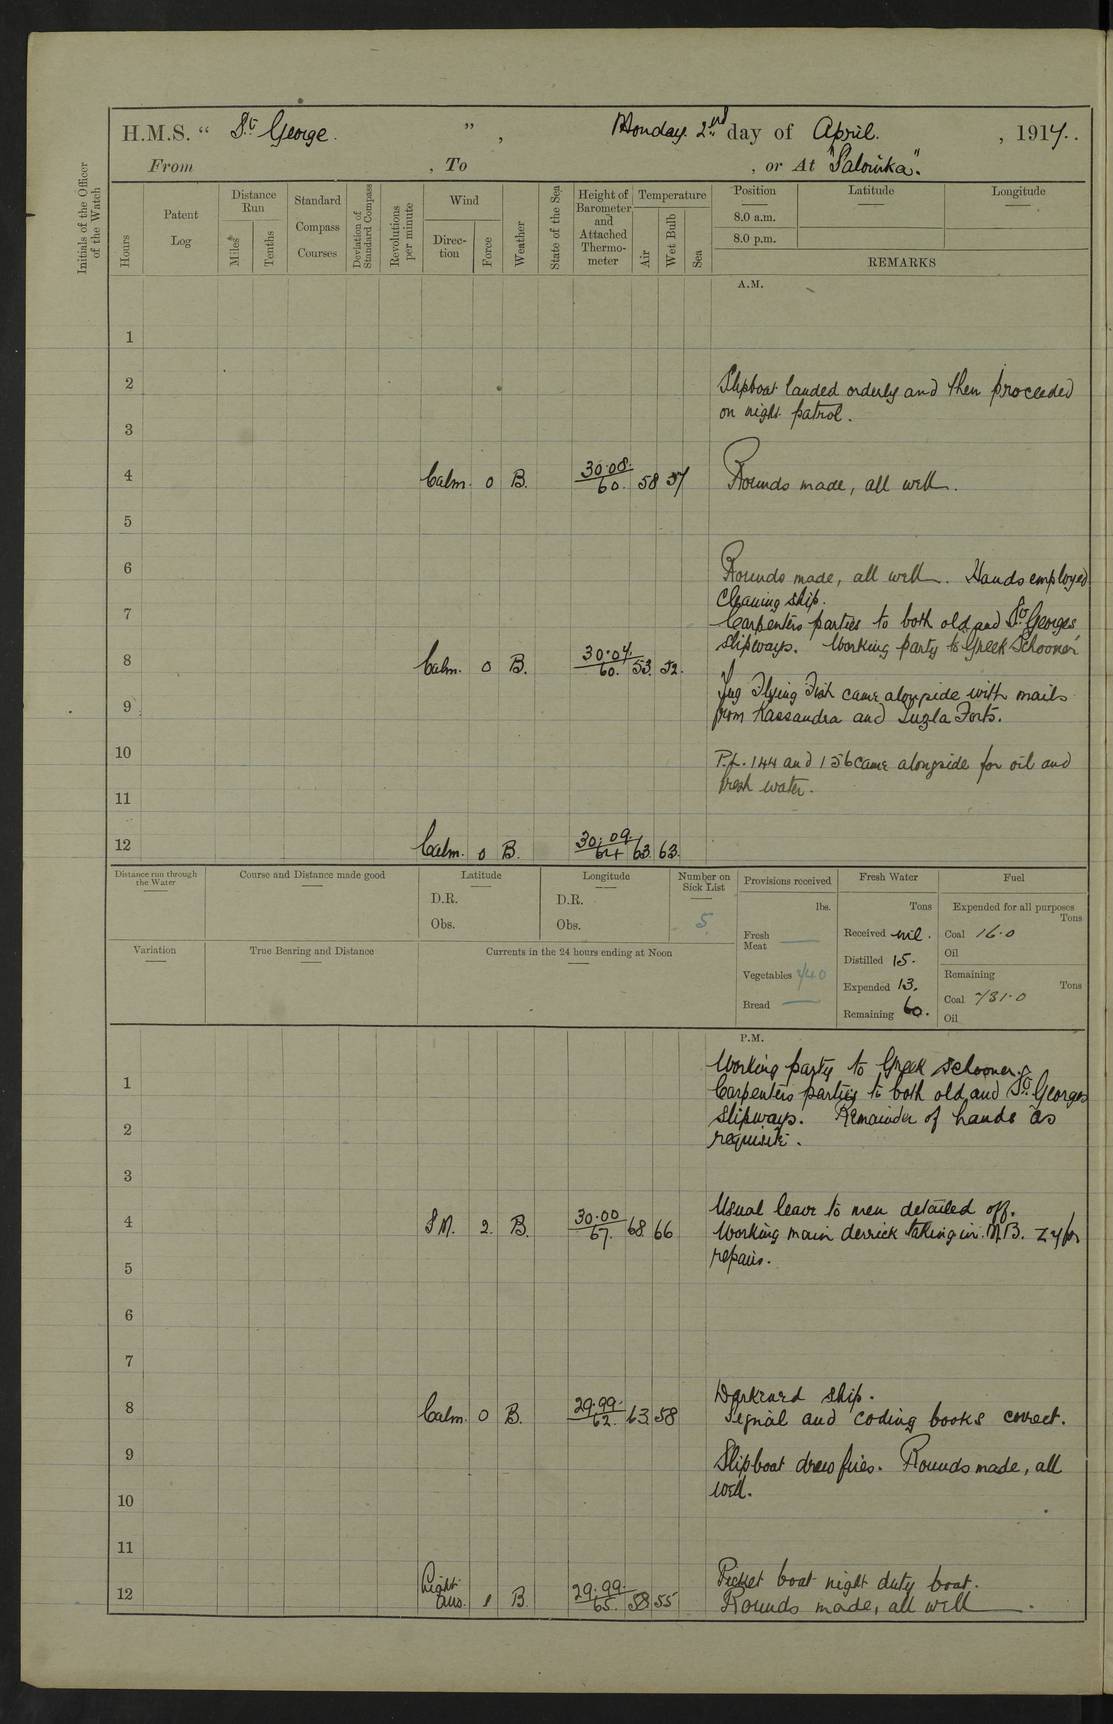 H.M.S. “ St. George. ” , Monday 2nd day of April. , 1917.
From , To , or At "Salonika".
Initials of the Officer of the Watch
Hours
Patent Log
Distance Run
Miles
Tenths
Standard Compass Courses
Deviation of Standard Compass
Revolutions per minute
Wind
Direc-tion
Force
Weather
State of the Sea
Height of Barometer and Attached Thermo-meter
Temperature
Air
Wet Bulb
Sea
Position Latitude Longitude
8.0 a.m.
8.0 p.m.
REMARKS
A.M.
1
2 Slipboat landed orderly and then proceeded
on night patrol.
3
4 Calm. 0 B. 30.08. 60. 58 57 Rounds made, all well.
5
6 Rounds made, all well. Hands employed
cleaning ship.
7 Carpenters parties to both old and St. Georges
slipways. Working party to Greek Schooner
8 Calm. 0 B. 30.04. 60. 53. 52.
Tug Flying Fish came alongside with mails
9 from Kassandra and Tuzla Forts.
10 P.L. 144 and 156 came alongside for oil and
fresh water.
11
12 Calm. 0 B. 30.09. 64 63. 63.
Distance run through the Water
Course and Distance made good
Latitude
D.R.
Obs.
Longitude
D.R.
Obs.
Number on Sick List
5
Provisions received
lbs.
Fresh Meat —
Vegetables 440
Bread —
Fresh Water
Tons
Received nil.
Distilled 15.
Expended 13.
Remaining 60.
Fuel
Expended for all purposes
Tons
Coal 16.0
Oil
Remaining
Tons
Coal 731.0
Oil
Variation
True Bearing and Distance
Currents in the 24 hours ending at Noon
P.M.
Working party to Greek schooner.
1 Carpenters parties to both old and St. Georges
slipways. Remainder of hands as
2 requisite.
3
Usual leave to men detailed off.
4 2. B. 30.00 67. 68. 66 Working main derrick taking in M.B. for
repairs.
5
6
7
Darkened ship.
8 Calm. 0 B. 29.99. 62. 63. 58 Signal and coding books correct.
9 Slipboat drew fires. Rounds made, all
well.
10
11
Picket boat night duty boat.
12 Light airs. 1 B. 29.99. 65. 58 55 Rounds made, all well.